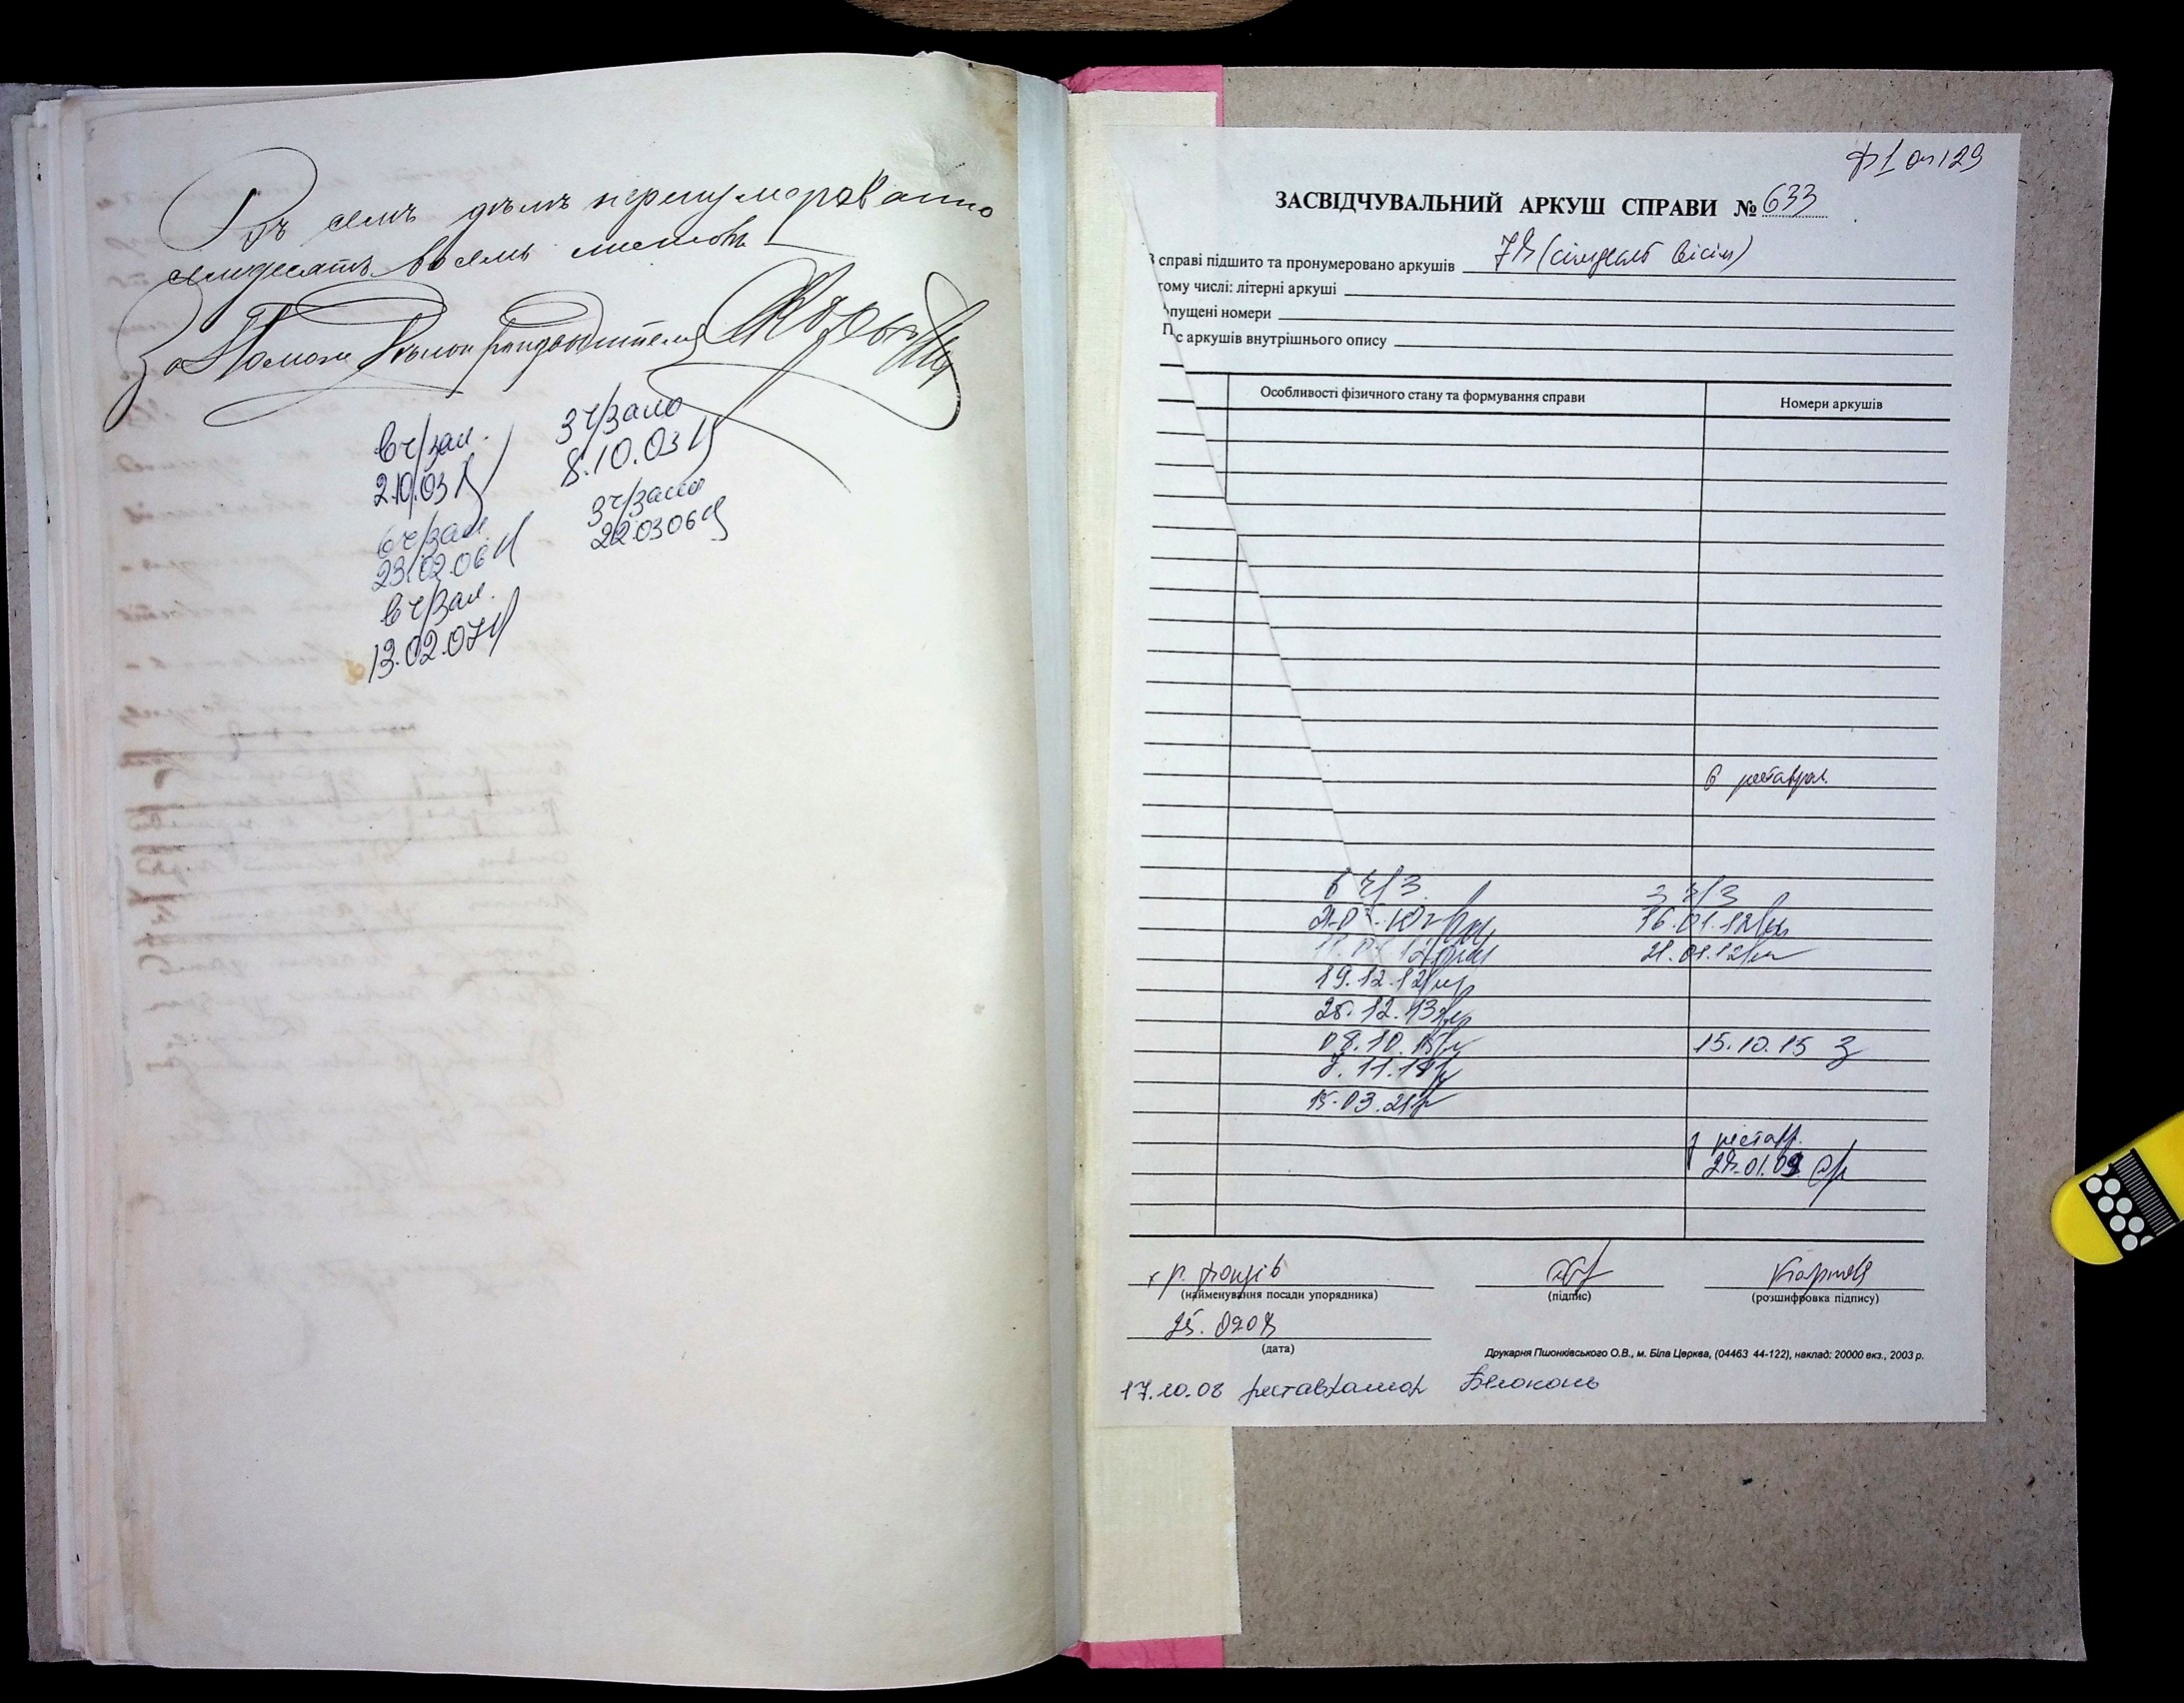 Въ семъ дѣлѣ перенумеровано
семдесятъ восемь листовъ
За Помощ. Дѣлопроизводителя
в ч/зал.
2.10.03
в ч/зал.
23.02.06
в ч/зал.
13.02.07
З ч/залю
8.10.03
З ч/залю
22.03.06
Ф1 оп 129
ЗАСВІДЧУВАЛЬНИЙ АРКУШ СПРАВИ № 633
справі підшито та пронумеровано аркушів 78 (сімдесят вісім)
тому числі: літерні аркуші
пущені номери
с аркушів внутрішнього опису
Особливості фізичного стану та формування справи
Номери аркушів
в реставрац.
в ч/з
19.12.12
26.12.13
08.10.15
7.11.18
15.03.21
з ч/з
16.01.12
21.01.12
15.10.15 З
з реставр.
28.01.09
(найменування посади упорядника)
(підпис)
(розшифровка підпису)
25.0208
(дата)
Друкарня Пшонківського О.В., м. Біла Церква, (04463 44-122), наклад: 20000 екз., 2003 р.
17.10.08 реставратор Белоконь